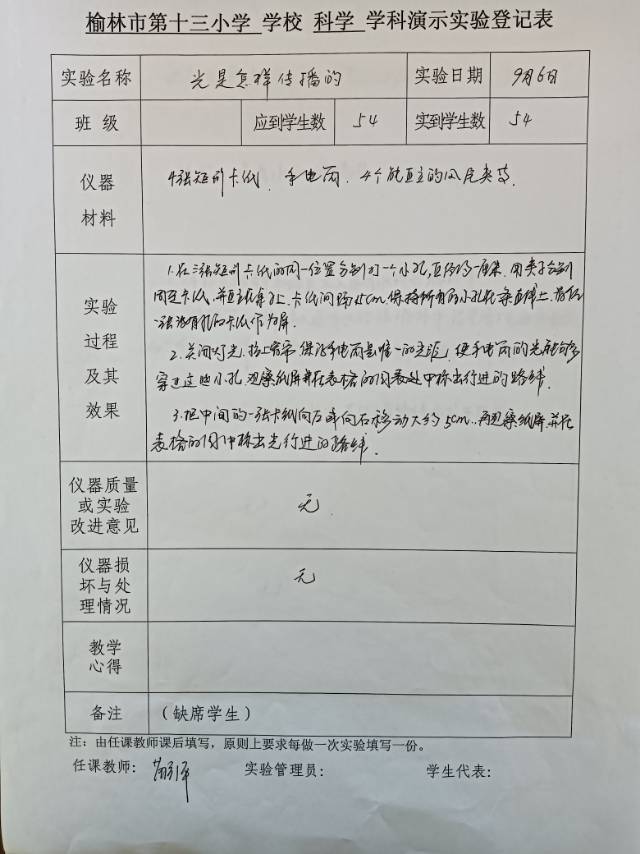 榆林市第十三小学 学校 科学 学科演示实验登记表
实验名称 光是怎样传播的 实验日期 9月6日
班 级 应到学生数 54 实到学生数 54
仪器
材料
4张短形卡纸、手电筒、4个能直立的
实验
过程
及其
效果
1.在3张短形卡纸的同一位置分别打一个小孔,直径约一厘米.用夹子分别
固定卡纸,并直立在桌上.卡纸间隔15cm.保持所有的小孔在一条直线上.最后
一张没有孔的卡纸作为屏.
2.关闭灯光,拉上窗帘,保证手电筒是唯一的光源,使手电筒的光能够
穿过这些小孔.观察纸屏并在表格的图中标出行进的路线.
3.把中间的一张卡纸向左或向右移动大约5cm..再观察纸屏.并在
表格的图中标出光行进的路线.
仪器质量
或实验
改进意见
无
仪器损
坏与处
理情况
无
教学
心得
备注 (缺席学生)
注:由任课教师课后填写,原则上要求每做一次实验填写一份。
任课教师: 实验管理员: 学生代表: